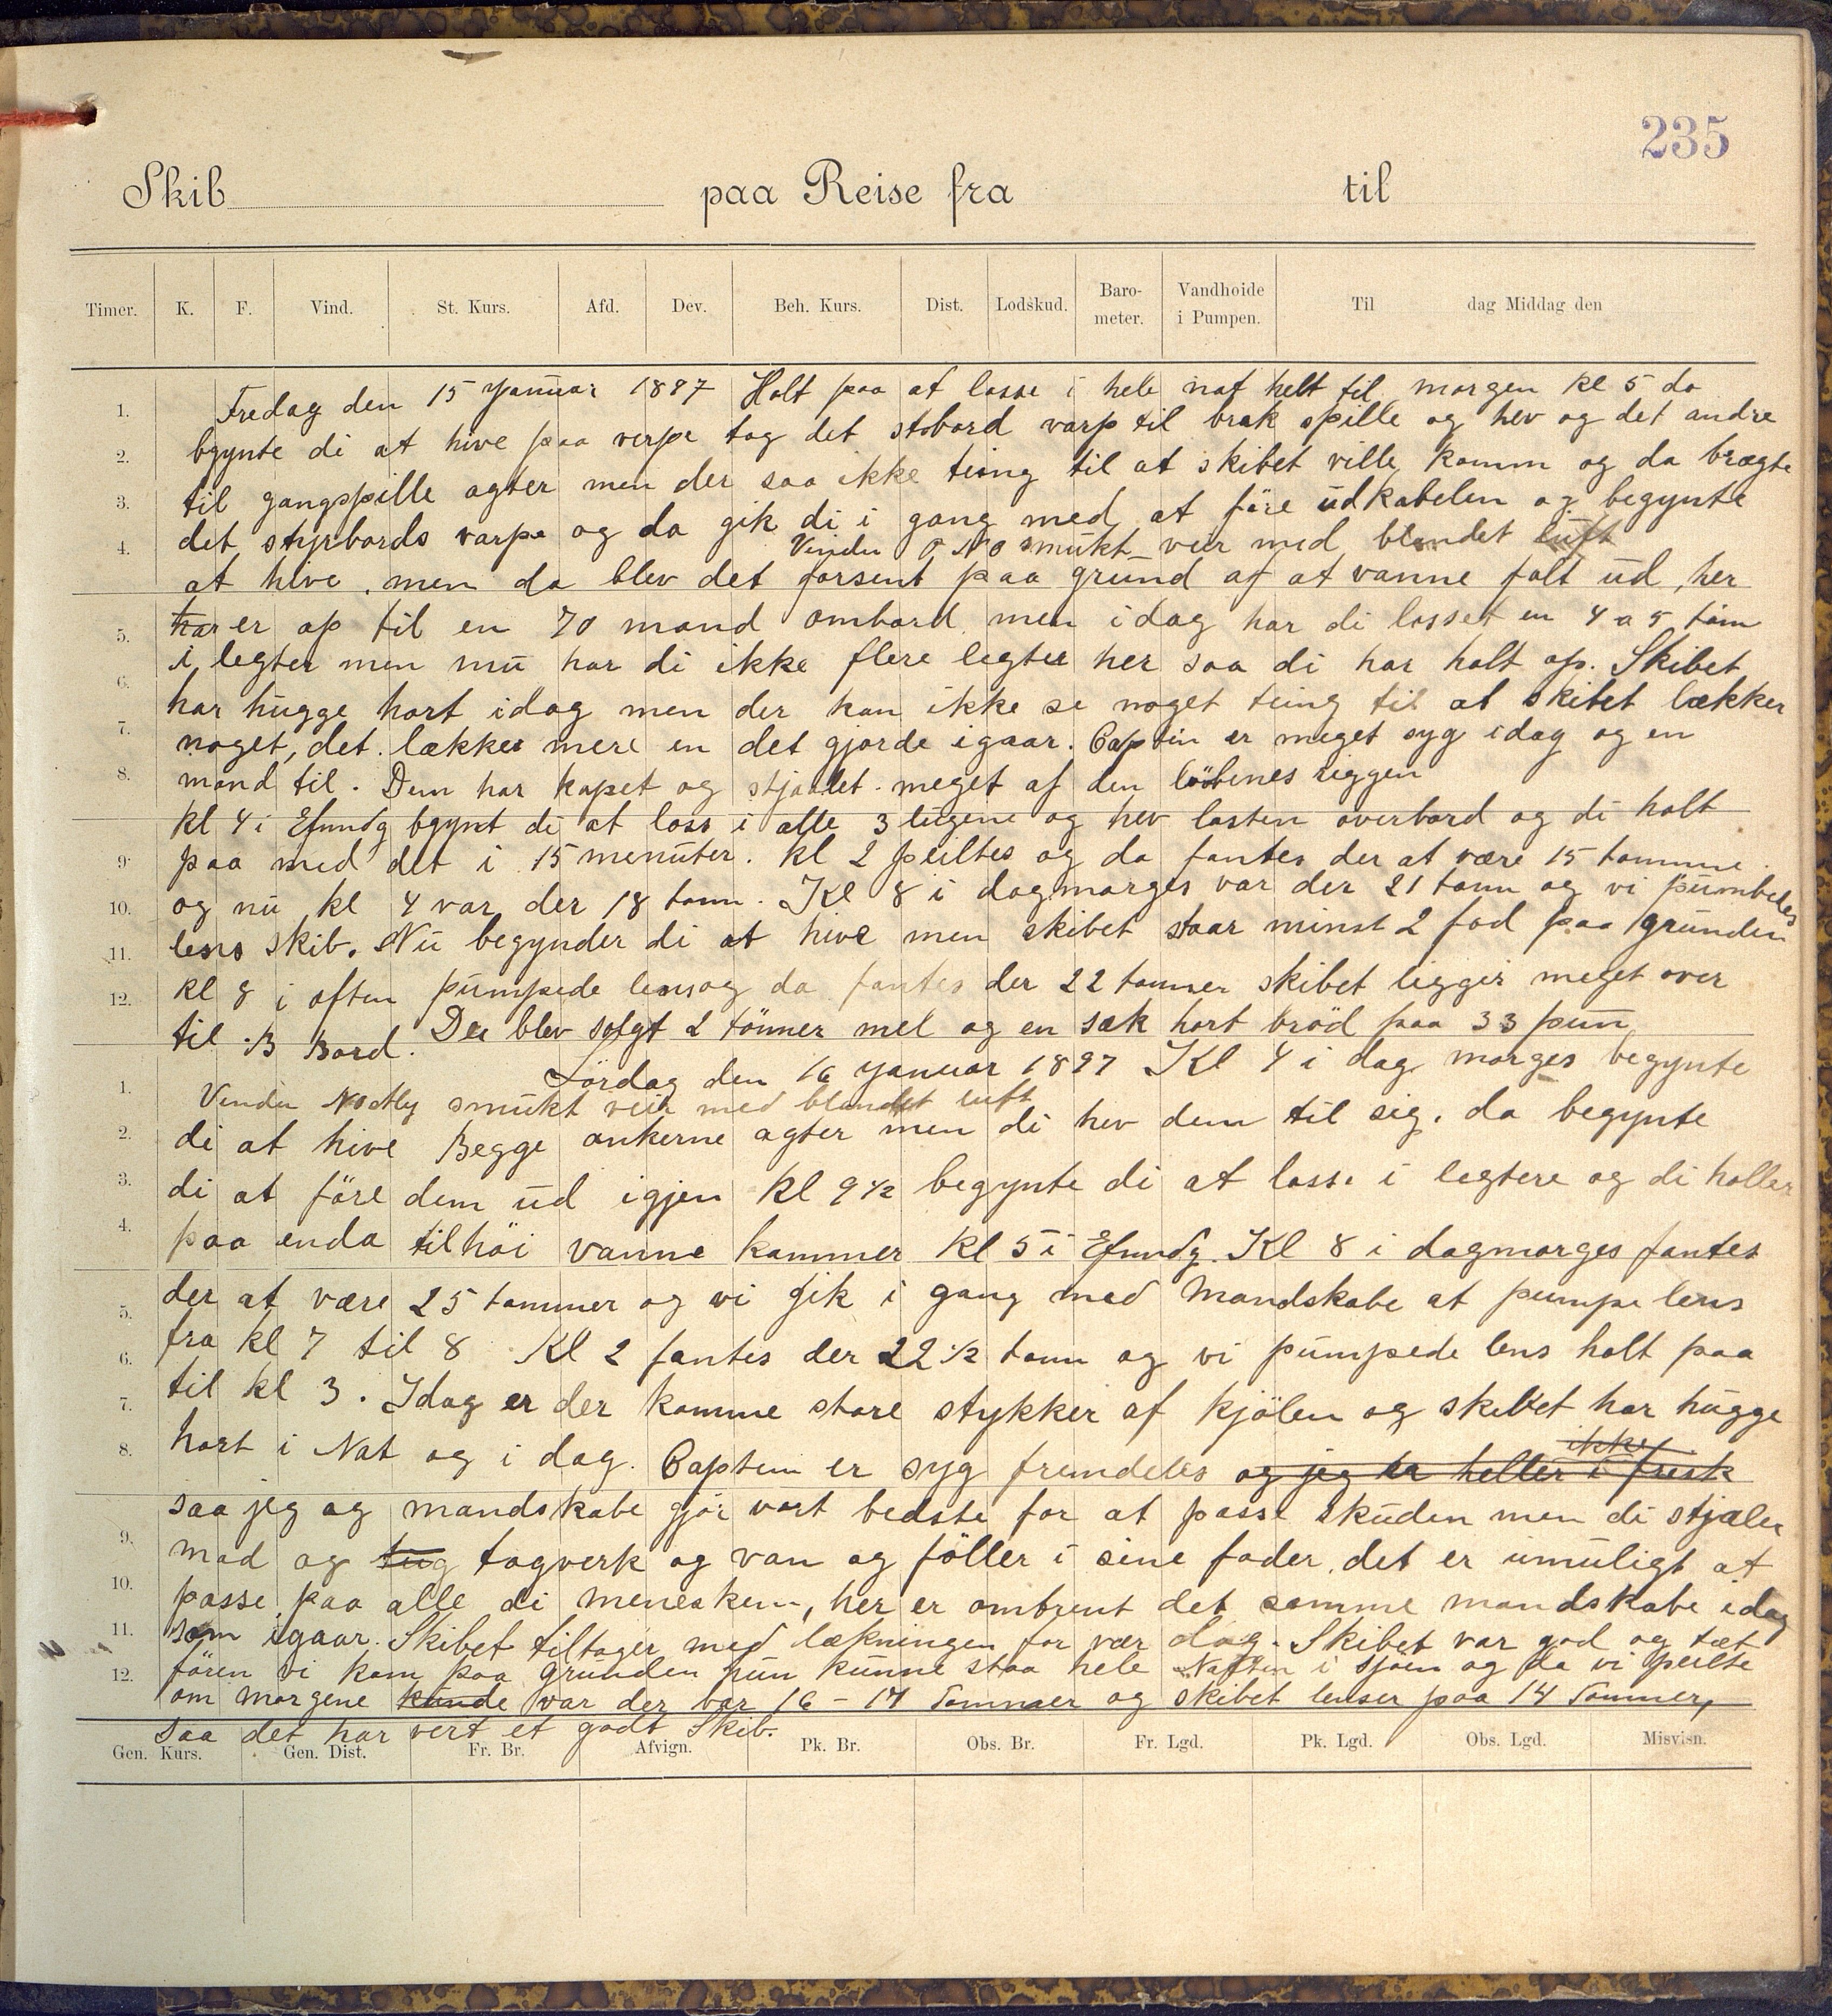 235
Skib paa Reise fra til
Timer. K. F. Vind. St. Kurs. Afd. Dev. Beh. Kurs. Dist. Lodskud. Baro-meter. Vandhoide i Pumpen. Til dag Middag den
1. Fredag den 15 Januar 1897 Holt paa at losse i hele nat helt til morgen kl 5 da
bgynte di at hive paa verpe tog det stbord varp til brak spille og hev og det andre
2. til gangspille agter men der saa ikke teing til at skibet ville komm og da brægte
3. det styrbords varpe og da gik di i gang med at före ud kabelen og begynte
4. Vinden O N O smukt veir med blandet luft
at hive. men da blev det forsent paa grund af at vanne falt ud, her
5. har er op til en 70 mand ombord men idag har di losset en 4 a 5 tom
i legter men nu har di ikke flere legter her saa di har holt op. Skibet
6. har hugge hart idag men der kan ikke se noget teing til at skibet lækker
7. noget, det lækker mere en det gjorde igaar. Captin er meget syg idag og en
8. mand til. Dem har kapet og stjaalet meget af den löbenes riggen
kl 4 i Efmdg bgynt di at loss i alle 3 lugene og hev lasten overbord og di holt
9. paa med det i 15 menuter. kl 2 peiltes og da fantes der at være 15 tomme
10. og nu kl 4 var der 18 tom. Kl 8 i dagmorges var der 21 tom og vi pumbedes
11. lens skib. Nu begynder di at hive men skibet staar minst 2 fod paa grunden
12. kl 8 i aften pumpede lens og da fantes der 22 tommer skibet ligger meget over
til B Bord. Der blev solgt 2 tönner mel og en sæk hart bröd paa 33 pun
Lördag den 16 Januar 1897 Kl 4 i dag morges begynte
1. Vinden Nostly smukt veir med blandet luft
2. di at hive Begge ankerne agter men di hev dem til sig. da begynte
3. di at före dem ud igjen kl 9 ½ begynte di at losse i legtere og di holler
4. paa enda til höi vanne kommer kl 5 i Efmdg. Kl 8 i dagmorges fantes
5. der at være 25 tommer og vi gik i gang med Mandskabe at pumpe lens
6. fra kl 7 til 8 Kl 2 fantes der 22 ½ tom og vi pumpede lens holt paa
7. til kl 3. Idag er der komme store stykker af kjölen og skibet har hugge
8. hart i Nat og i dag. Captein er syg fremdeles og jeg er heller i ikke frisk
saa jeg og mandskabe gjör vort bedste for at passe skuden men di stjæler
9. mad og tug togverk og van og föller i sine fader. det er umuligt at
10. passe paa alle di menesken, her er ombrent det samme mandskabe idag
11. som igaar. Skibet tiltager med lækningen for vær dag. Skibet var god og tæt
12. fören vi kom paa grunden hun kunne staa hele Natten i sjöen og da vi peilte
om morgene kunde var der var 16 - 17 Tommer og skibet lenser paa 14 Tommer,
saa det har vert et godt Skib.
Gen. Kurs. Gen. Dist. Fr. Br. Afvign. Pk. Br. Obs. Br. Fr. Lgd. Pk. Lgd. Obs. Lgd. Misvisn.